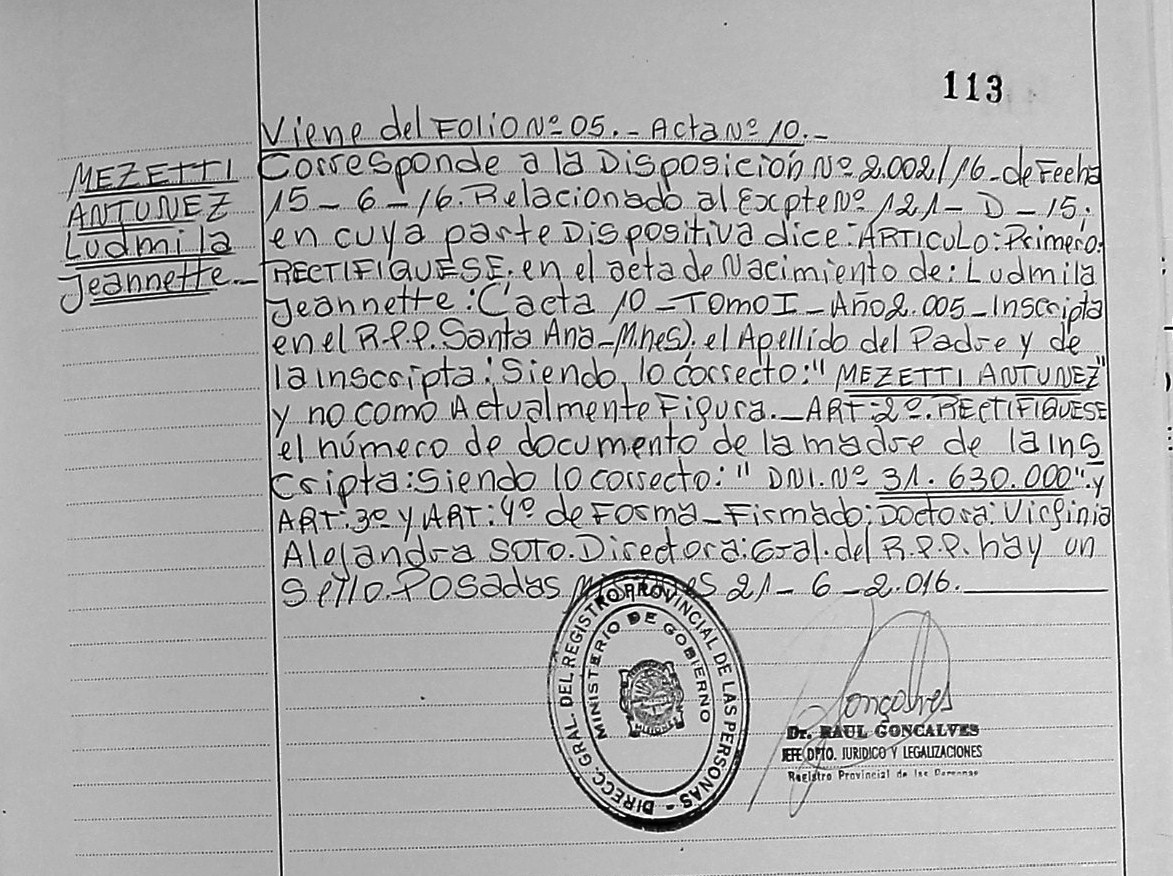 113
Viene del Folio Nº 05. - Acta Nº 10. -
MEZETTI
ANTUNEZ
Ludmila
Jeannette. -
Corresponde a la Disposición Nº 2.002/16 - de Fecha
15 - 6 - 16. Relacionado al Expte Nº 121 - D - 15.
en cuya parte Dispositiva dice: ARTICULO: Primero:
RECTIFIQUESE. en el acta de Nacimiento de: Ludmila
Jeannette: C'acta 10 - TOMO I - Año 2.005 - Inscripta
en el R.P.P. Santa Ana - Mnes). el Apellido del Padre y de
la inscripta: Siendo, lo correcto: " MEZETTI ANTUNEZ"
y no como Actualmente Figura. - ART: 2º. RECTIFIQUESE
el número de documento de la madre de la ins
cripta: Siendo lo correcto: " DNI. Nº 31. 630.000". y
ART: 3º y ART: 4º de Forma - Firmado: Doctora: Virginia
Alejandra SOTO. Directora: Gral. del R.P.P. hay un
Sello. Posadas 21 - 6 - 2.016.
DIRECC. GRAL. DEL REGISTRO PROVINCIAL DE LAS PERSONAS -
MINISTERIO DE GOBIERNO
MISIONES
Gonçalves
Dr. RAUL GONCALVES
JEFE DPTO. JURIDICO Y LEGALIZACIONES
Registro Provincial de las Personas